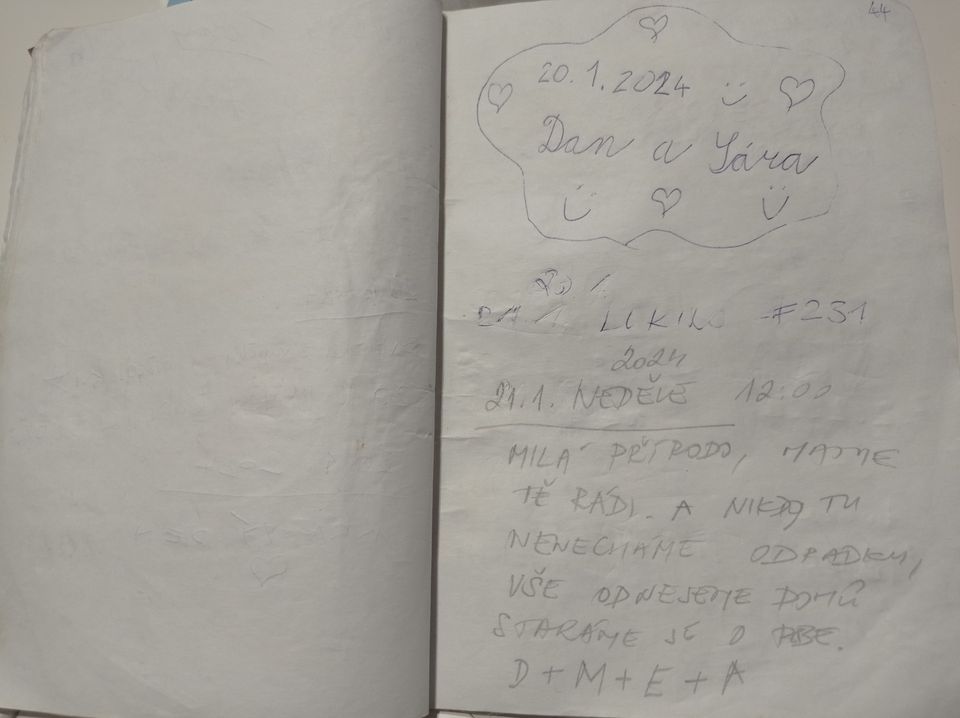 44
20.1.2024
Dan a Sára
20.1.
21.1. F2S1
2024
21.1. NEDĚLE 12:00
MILÁ PŘÍRODO, MÁME
TĚ RÁDI. A NIKDY TU
NENECHÁME ODPADKY,
VŠE ODNESEME DOMŮ
STARÁME SE O
D + M + E + A